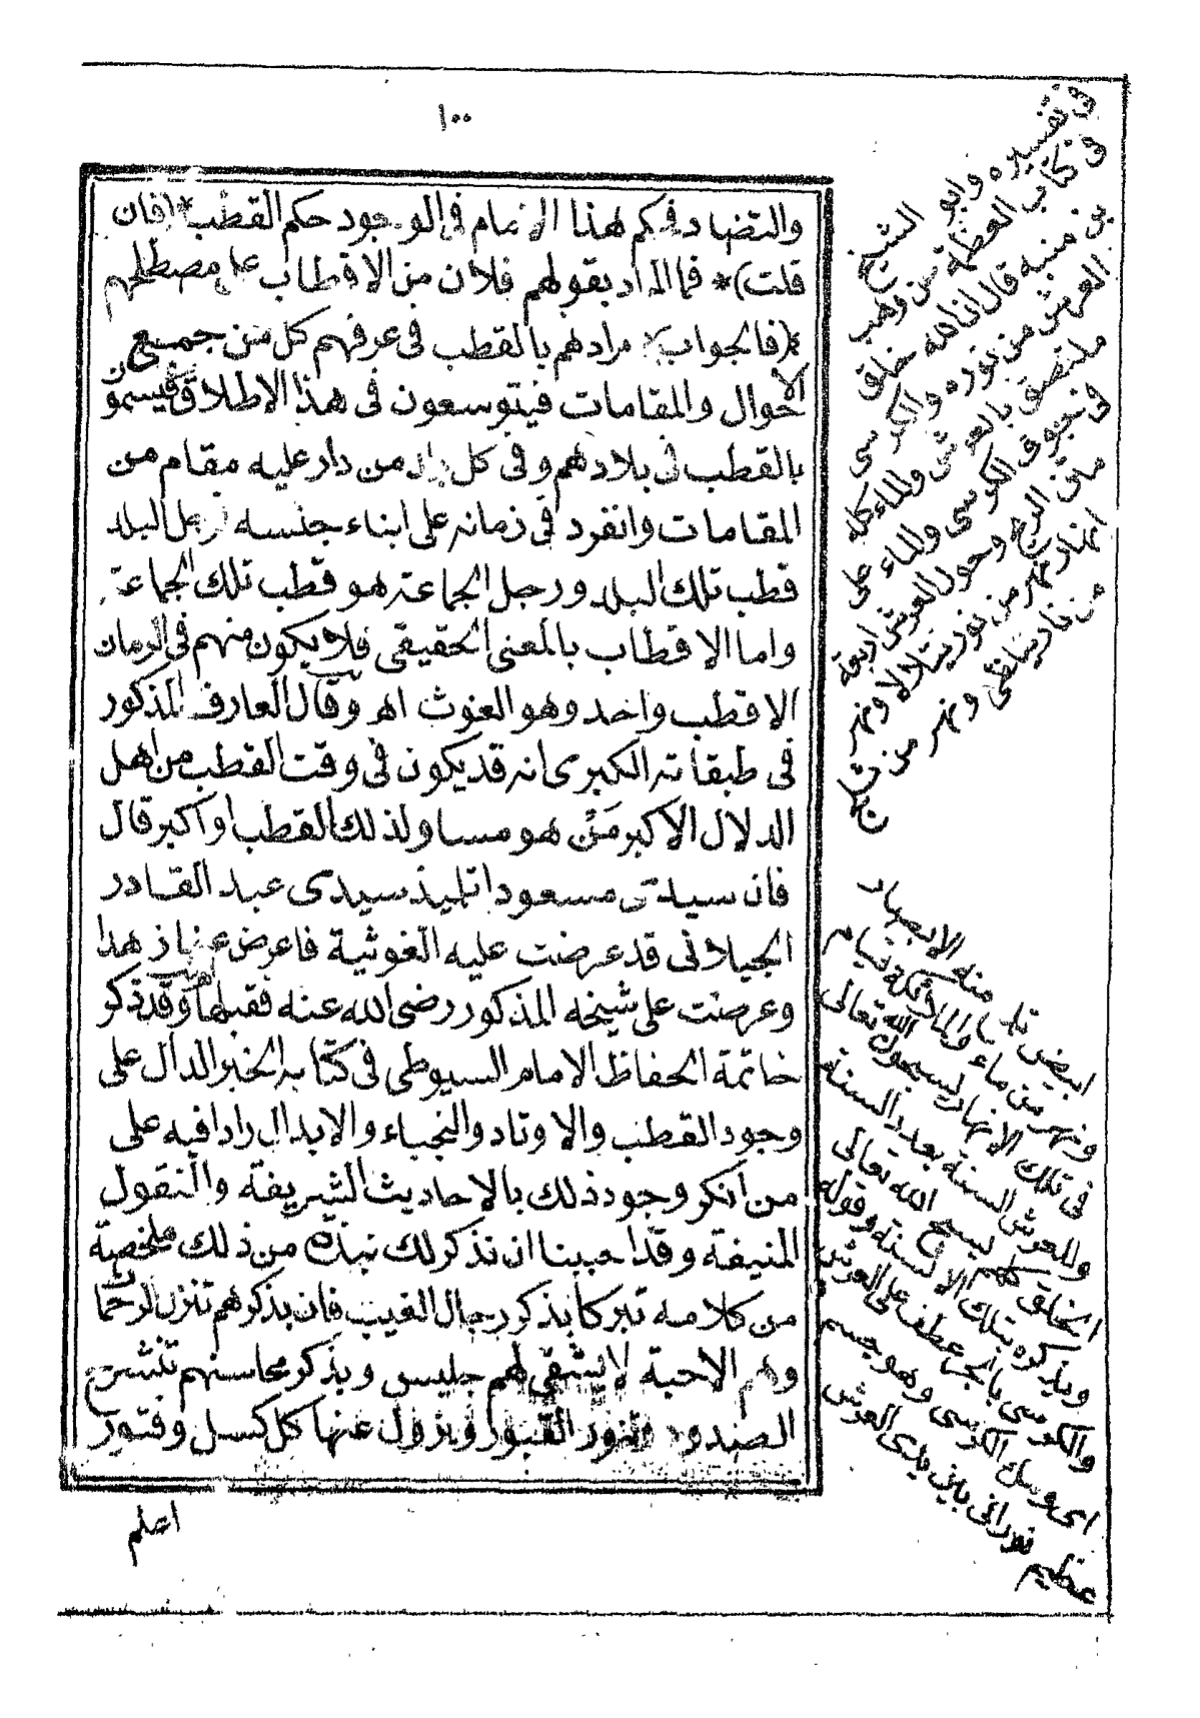 ١٠٠
والتضاد فحكم هذا الامام فى الوجود حكم القطب *(فان
قلت)* فما المراد بقولهم فلان من الاقطاب على مصطلحهم
*(فالجواب)* مرادهم بالقطب فى عرفهم كل من جميع
الاحوال والمقامات فيتوسعون فى هذا الاطلاق فيسمون
بالقطب فى بلادهم وفى كل بلد من دار عليه مقام من
المقامات وانفرد فى زمانه على ابناء جنسه فرجل البلد
قطب تلك البلد ورجل الجماعة هو قطب تلك الجماعة
واما الاقطاب بالمعنى الحقيقى فلا يكون منهم فى الزمان
الا قطب واحد وهو الغوث اهـ وقال العارف المذكور
فى طبقاته الكبرى انه قد يكون فى وقت القطب من اهل
الدلال الاكبر مَنْ هو مساو لذلك القطب او اكبر قال
فان سيدى مسعودا تلميذ سيدى عبد القادر
الجيلانى قد عرضت عليه الغوثية فاعرض عنها زهدا
وعرضت على شيخه المذكور رضى الله عنه فقبلها وقد ذكر
خاتمة الحفاظ الامام السيوطى فى كتابه الخبر الدال على
وجود القطب والاوتاد والنجباء والابدال رادا فيه على
من انكر وجود ذلك بالاحاديث الشريفة والنقول
المنيفة وقد احببنا ان نذكر لك نبذة من ذلك ملخصة
من كلامه تبركا بذكر رجال الغيب فان بذكرهم تنزل الرحمات
وهم الاحبة لا يشقى لهم جليس وبذكر محاسنهم تنشرح
الصدور وتنور القبور ويزول عنها كل كسل وفتور
اعلم
فى تفسيره وابو الشيخ
فى كتاب العظمة عن وهب
بن منبه قال ان الله خلق
العرش من نوره والكرسى
ملتصق بالعرش والماء كله
فى جوف الكرسى والماء على
متن الريح وحول العرش اربعة
انهار نهر من نور يتلالا ونهر
من نار يتلظى ونهر من ثلج
ابيض تلتمع منه الابصار
ونهر من ماء والملائكة قيام
فى تلك الانهار يسبحون الله تعالى
وللعرش السنة بعدد السنة
الخلق كلهم يسبح الله تعالى
ويذكره بتلك الالسنة وقوله
والكرسى بالجر عطف على العرش
اى وسك الكرسى وهو جسم
عظيم نورانى بين يدى العرش